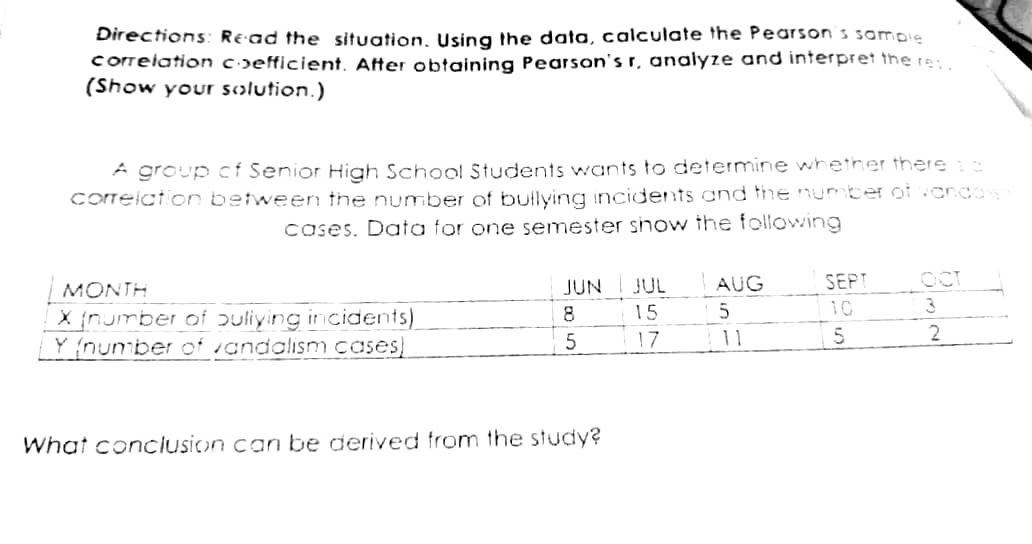 Directions: Read the situation. Using the data, calculate the Pearson's sample
correlation coefficient. After obtaining Pearson's r, analyze and interpret the
(Show your solution.)
A group of Senior High School Students wants to determine whether there
correlation between the number of bullying incidents and the number of
cases. Data for one semester show the following
MONTH JUN JUL AUG SEPT OCT
X (number of bullying incidents) 8 15 5 10 3
Y (number of vandalism cases) 5 17 11 5 2
What conclusion can be derived from the study?